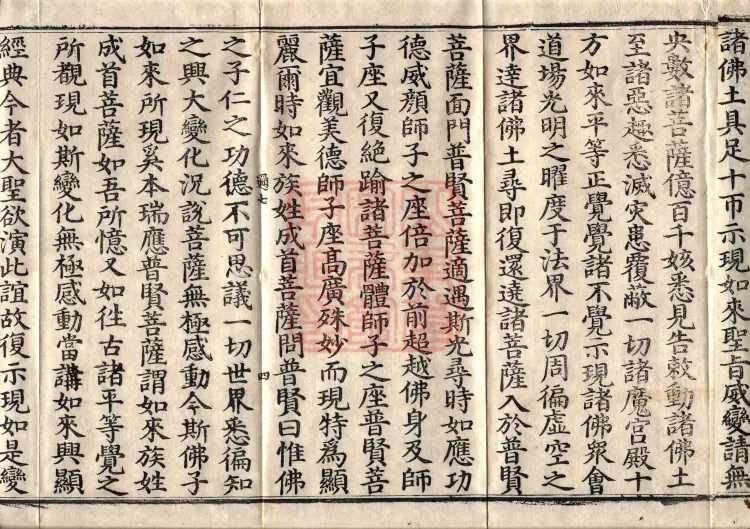 諸佛土具足十帀示現如來聖旨威變請無
央數諸菩薩億百千姟悉見告敕動諸佛土
至諸惡趣悉滅灾患覆蔽一切諸魔宮殿十
方如來平等正覺覺諸不覺示現諸佛衆會
道場光明之曜度于法界一切周徧虛空之
界達諸佛土尋即復還遶諸菩薩入於普賢
菩薩面門普賢菩薩適遇斯光尋時如應功
德威顔師子之座倍加於前超越佛身及師
子座又復絶踰諸菩薩體師子之座普賢菩
薩宜觀美德師子座髙廣殊妙而現特爲顯
麗爾時如來族姓成首菩薩問普賢曰惟佛
過七
四
之子仁之功德不可思議一切世界悉徧知
之興大變化況說菩薩無極感動今斯佛子
如來所現奚本瑞應普賢菩薩謂如來族姓
成首菩薩如吾所憶又如徃古諸平等覺之
所觀現如斯變化無極感動當講如來興顯
經典今者大聖欲演此誼故復示現如是變